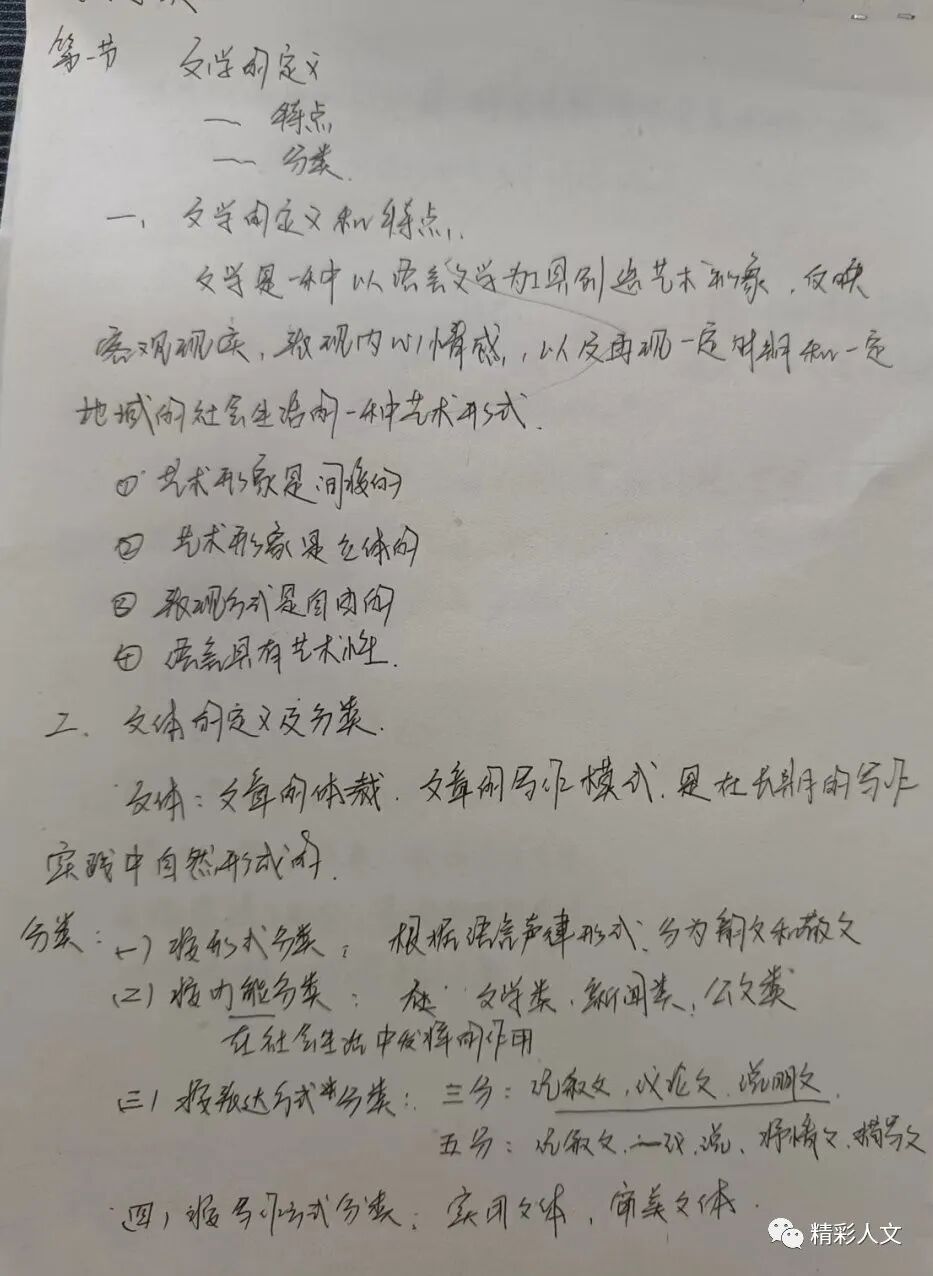 第一节 文学的定义
一 特点
一 分类.
一、文学的定义和特点.
文学是一种以语言文字为工具创造艺术形象、反映
客观现实、表现内心情感,以及再现一定时期和一定
地域的社会生活的一种艺术形式.
① 艺术形象是间接的
② 艺术形象是立体的
③ 表现方式是自由的
④ 语言具有艺术性.
二、文体的定义及分类.
文体:文章的体裁、文章的写作模式、是在长期的写作
实践中自然形成的.
分类:(一)按形式分类:根据语言声律形式、分为韵文和散文
(二)按功能分类: 文学类、新闻类、公文类
在社会生活中发挥的作用
(三)按表达方式分类:三分:记叙文、议论文、说明文
五分:记叙文、议、说、抒情文、描写文
(四)按写作方式分类:实用文体、审美文体.
精彩人文